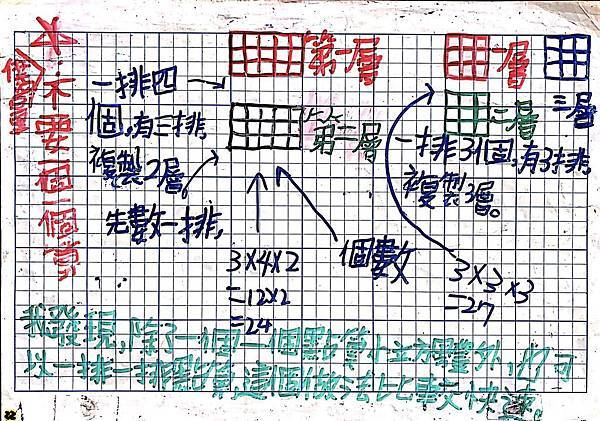 不要一個一個算
第一層
一排四
個,有三排,
複製2層。
先數一排,
第二層
3×4×2
=12×2
=24
個數
一層
二層
三層
一排3個,有3排,
複製3層。
3×3×3
=27
我發現,除了一個一個點算小立方體外,也可
以一排一排點算,這個做法比較快速。
22